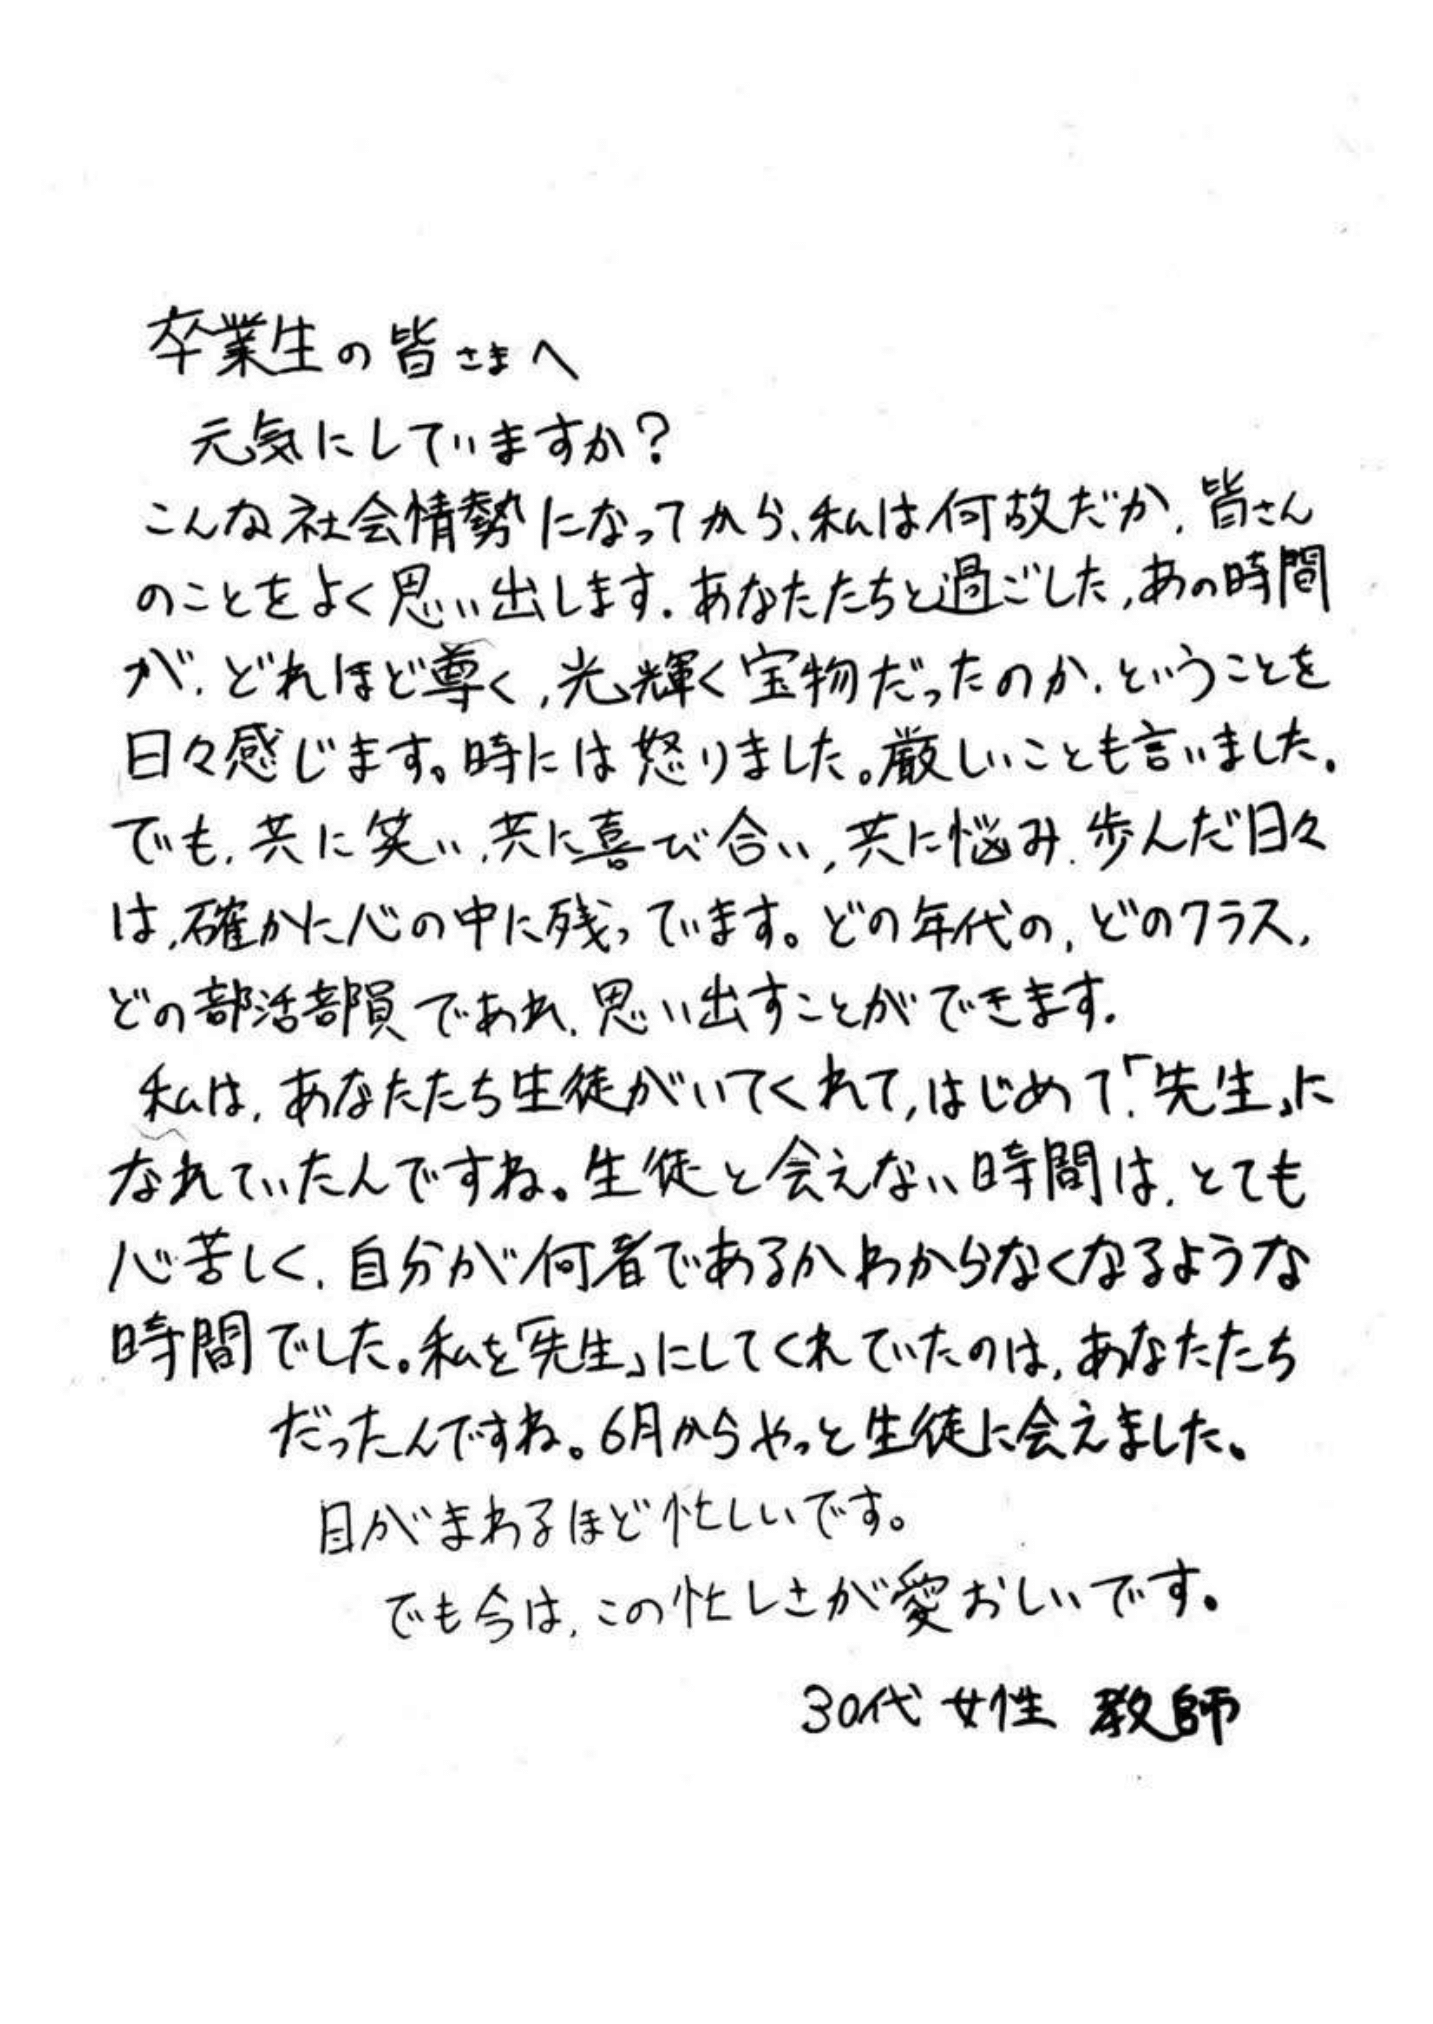 卒業生の皆さまへ
元気にしていますか？
こんな社会情勢になってから、私は何故だか、皆さん
のことをよく思い出します。あなたたちと過ごした、あの時間
が、どれほど尊く、光輝く宝物だったのか、ということを
日々感じます。時には怒りました。厳しいことも言いました。
でも、共に笑い、共に喜び合い、共に悩み、歩んだ日々
は、確かに心の中に残っています。どの年代の、どのクラス、
どの部活部員であれ、思い出すことができます。
私は、あなたたち生徒がいてくれて、はじめて、「先生」に
なれていたんですね。生徒と会えない時間は、とても
心苦しく、自分が何者であるかわからなくなるような
時間でした。私を「先生」にしてくれていたのは、あなたたち
だったんですね。6月からやっと生徒に会えました。
目がまわるほど忙しいです。
でも今は、この忙しさが愛おしいです。
30代 女性 教師